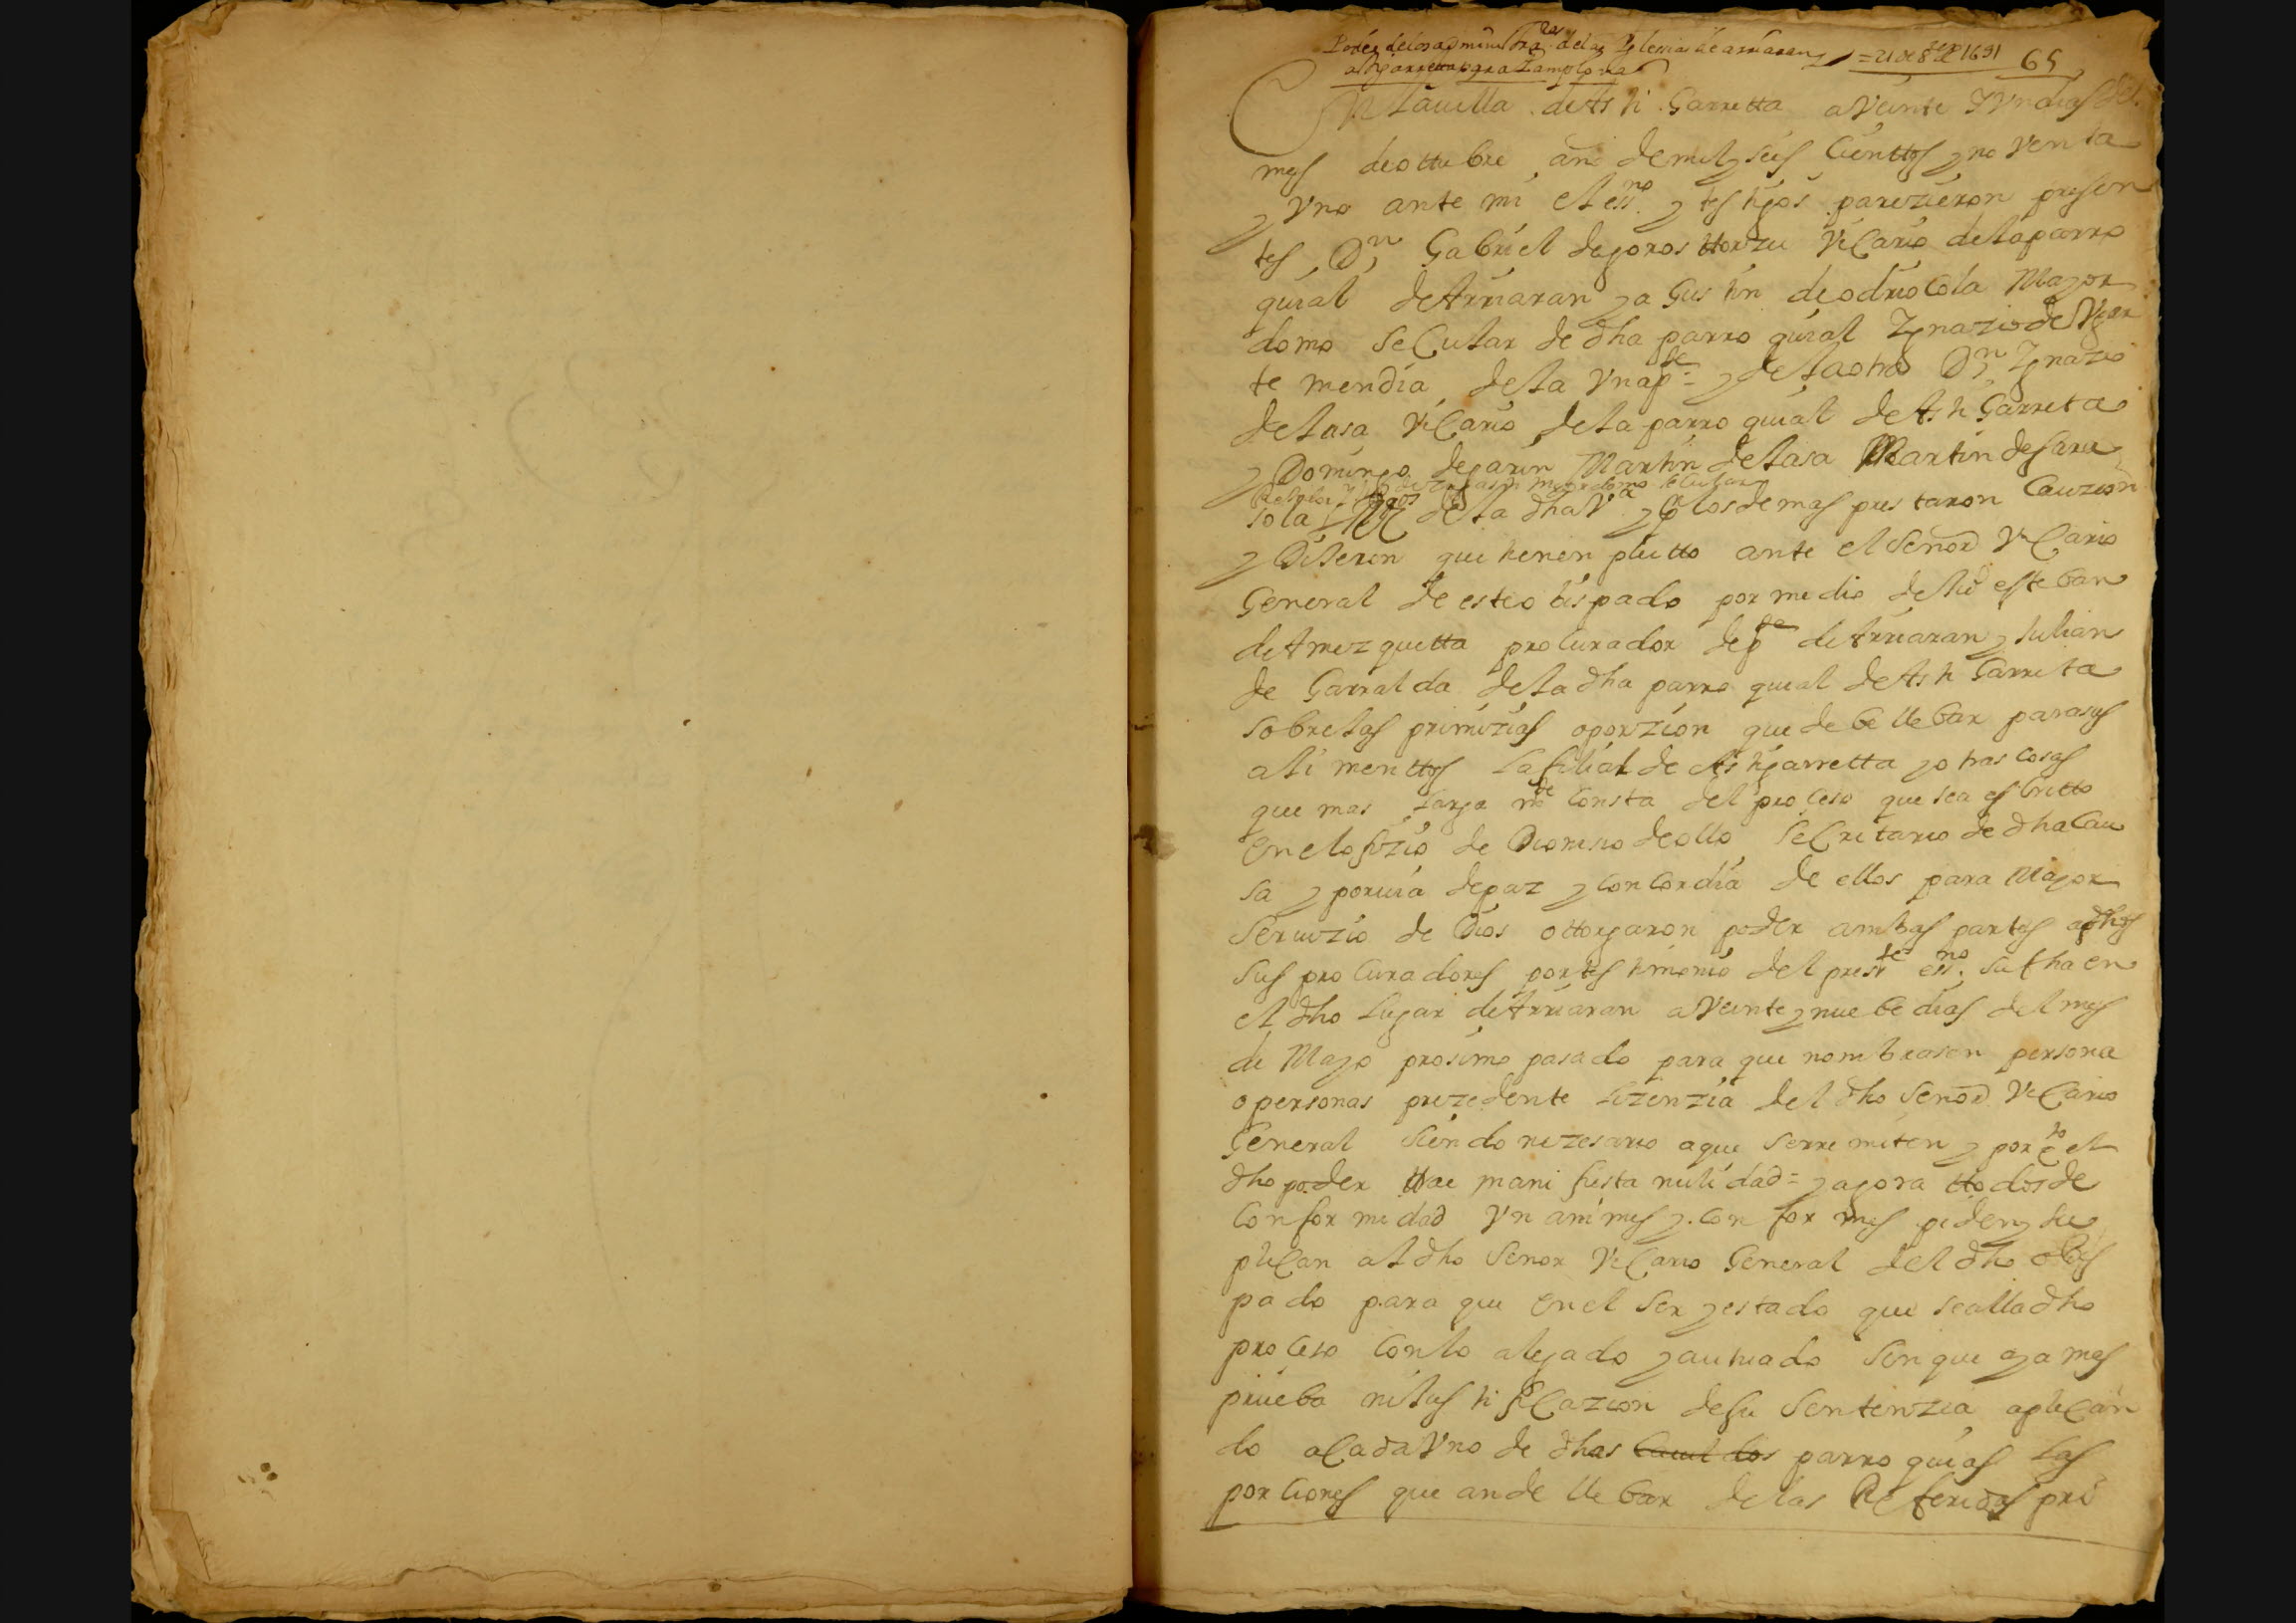 Poder delos administra^res delas Yglesias de arriaran y = 21 de 8^bre de 1691 65
astigarreta para Pamplona
En la uilla de Astigarretta a Veinte Y Vn dias del
mes de ottubre año de mil y seis Cienttos y no Venta
y Vno ante mi el ess^no y testigos parezieron presen
tes Dⁿ Gabriel de gorosttorzu ViCario de la parro
quial de Arriaran y a Gustin de odrioCola Mayor
domo seCular de dha parroquial Ygnazio de Ygar
te mendia de la Vna p^te y de la otra Dⁿ Ygnazio
de lasa ViCario de la parro quial de Astigarreta
y Domingo de garin Martin de lasa Martin de Sara
sola de la dha V^a y los demas prestaron Cauzion
y Dixeron que tienen pleitto ante el Señor ViCario
General de este obispado por medio de esteban
de Amezquetta proCurador de p^te de Arriaran y Julian
de Garralda de la dha parro quial de Astigarreta
sobre las primizias o porzion que debe llebar para sus
ali menttos la filial de Astigarretta y otras cosas
que mas larga m^te Consta del proCeso que sea esCritto
En el ofizio de Dionisio de ollo SeCretario de dha Cau
sa y por uia de paz y ConCordia de ellos para Mayor
Seruizio de Dios ottorgaron poder ambas partes a dhos
sus proCuradores por testimonio del pres^te ess^no su fha en
el dho lugar de Arriaran a Veinte y nuebe dias del mes
de Mayo prosimo pasado para que nombrasen persona
o personas prezedente lizenzia del dho Señor ViCario
General siendo nezesario a que se rremiten y por q^to el
dho poder ttrae mani fiesta nulidad = y agora ttodos de
Confor midad Vn animes y con formes piden y su
pliCan al dho Señor ViCario General del dho obis
pado para que En el Ser y estado que se alla dho
proCeso Con lo alegado y autuado sin que aya mas
prueba ni JustifiCazion de su Sentenzia apliCan
do a Cada Vno de dhas parroquias las
porCiones que an de llebar de las Referidas pri